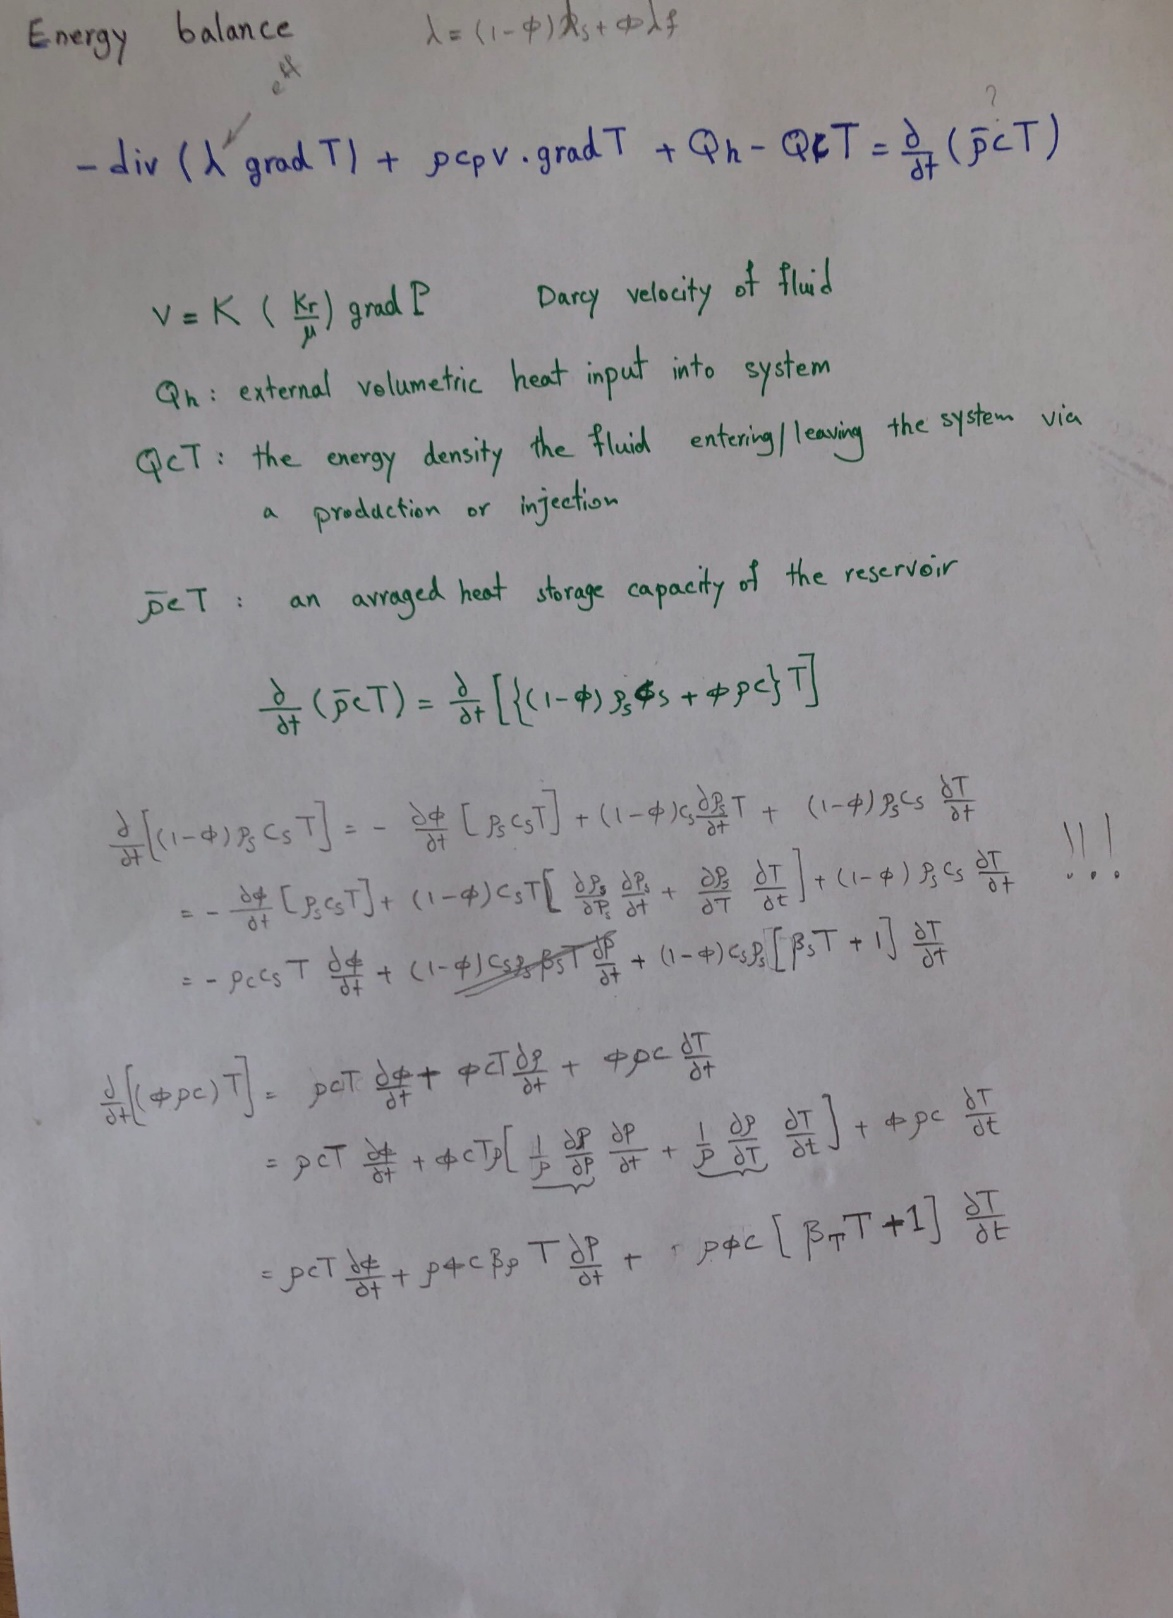 Energy balance λ = (1-φ)λs + φλf
eff
?
- div (λ grad T) + ρcpv . grad T + Qh - QcT = ∂/∂t (ρ̄cT)
v = K (Kr/μ) grad P Darcy velocity of fluid
Qh : external volumetric heat input into system
QcT : the energy density the fluid entering/leaving the system via
a production or injection
ρ̄cT : an avraged heat storage capacity of the reservoir
∂/∂t (ρ̄cT) = ∂/∂t [{(1-φ) ρs cs + φρc} T]
∂/∂t [(1-φ) ρs cs T] = - ∂φ/∂t [ρs cs T] + (1-φ) cs ∂ρs/∂t T + (1-φ) ρs cs ∂T/∂t
= - ∂φ/∂t [ρs cs T] + (1-φ) cs T [∂ρs/∂Ps ∂Ps/∂t + ∂ρs/∂T ∂T/∂t] + (1-φ) ρs cs ∂T/∂t !!!
= - ρc cs T ∂φ/∂t + (1-φ) cs ρs βs T ∂P/∂t + (1-φ) cs ρs [βs T + 1] ∂T/∂t
∂/∂t [(φρc) T] = ρcT ∂φ/∂t + φcT ∂ρ/∂t + φρc ∂T/∂t
= ρcT ∂φ/∂t + φcTρ [1/ρ ∂ρ/∂P ∂P/∂t + 1/ρ ∂ρ/∂T ∂T/∂t] + φρc ∂T/∂t
= ρcT ∂φ/∂t + ρφc βρ T ∂P/∂t + ρφc [βT T + 1] ∂T/∂t